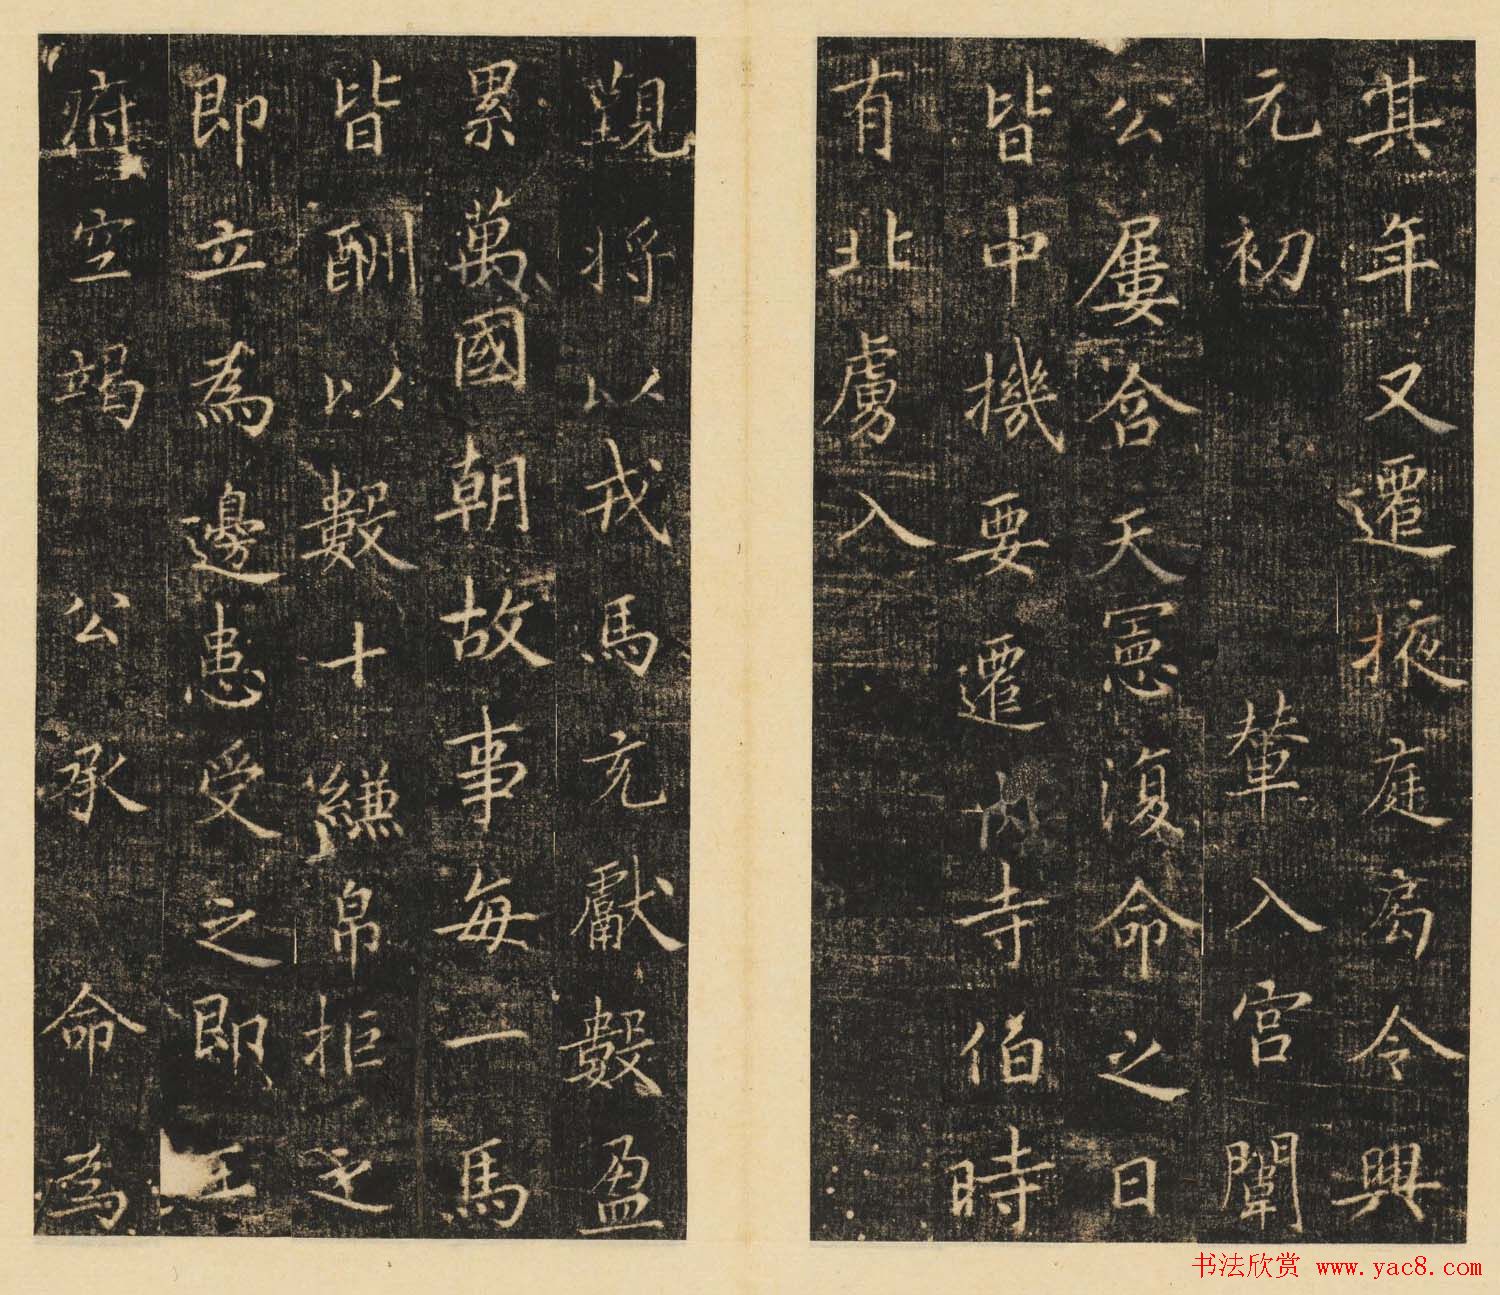 其年又遷掖庭局令興
元初 輦入宮闈
公屢含天憲復命之日
皆中機要遷内寺伯時
有北虜入
覲將以戎馬充獻數盈
累萬國朝故事每一馬
皆酬以數十縑帛拒之
即立為邊患受之即王
府空竭 公承命為
书法欣赏 www.yac8.com